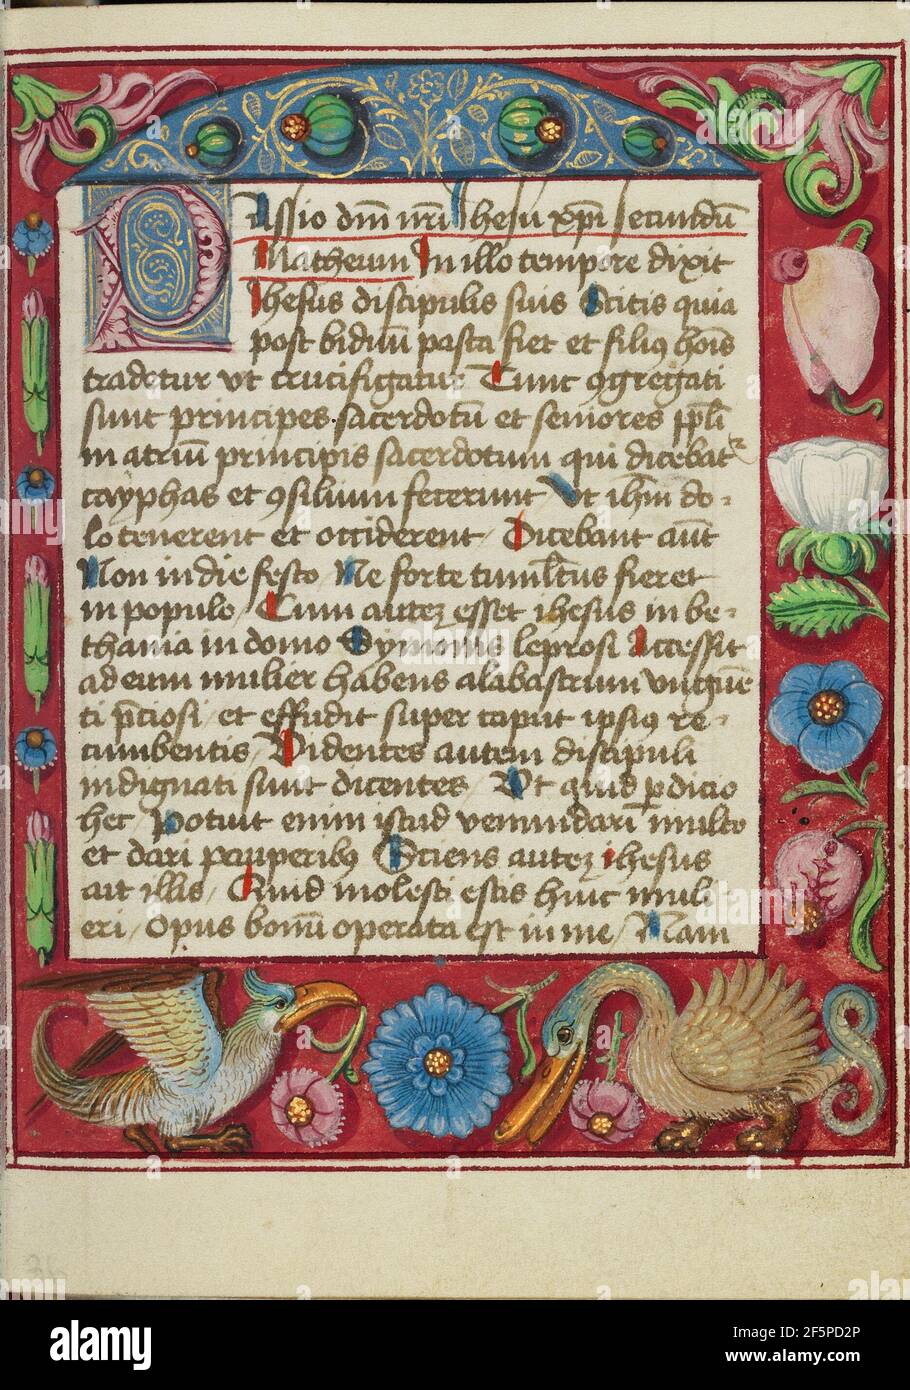 Passio dm̄ nr̄i Jhesu xp̄i secundū
Matheum In illo tempore dixit
Jhesus discipulis suis Scitis quia
post biduū pasca fiet et filiꝰ hoīs
tradetur vt crucifigatur Tunc ꝯgregati
sunt principes sacerdotū et seniores pp̄li
in atriū principis sacerdotum qui dicebatr
cayphas et ꝯsilium fecerunt Vt ihm̄ do-
lo tenerent et occiderent / Dicebant aūt
Non in die festo / Ne forte tumultus fieret
in populo / Cum autez esset ihesus in be-
thania in domo Symonis leprosi Accessit
ad eum mulier habens alabastrum vnguē
ti p̄ciosi / et effudit super caput ipsiꝰ re-
cumbentis / Videntes autem discipuli
indignati sunt dicentes / Vt quid ꝑdicio
hec / Potuit enim istud venundari multo
et dari pauperibꝰ Sciens autez ihesus
ait illis / Quid molesti estis huic muli
eri / Opus bonū operata est in me / Nam
36
alamy
Image ID: 2F5PD2P
www.alamy.com